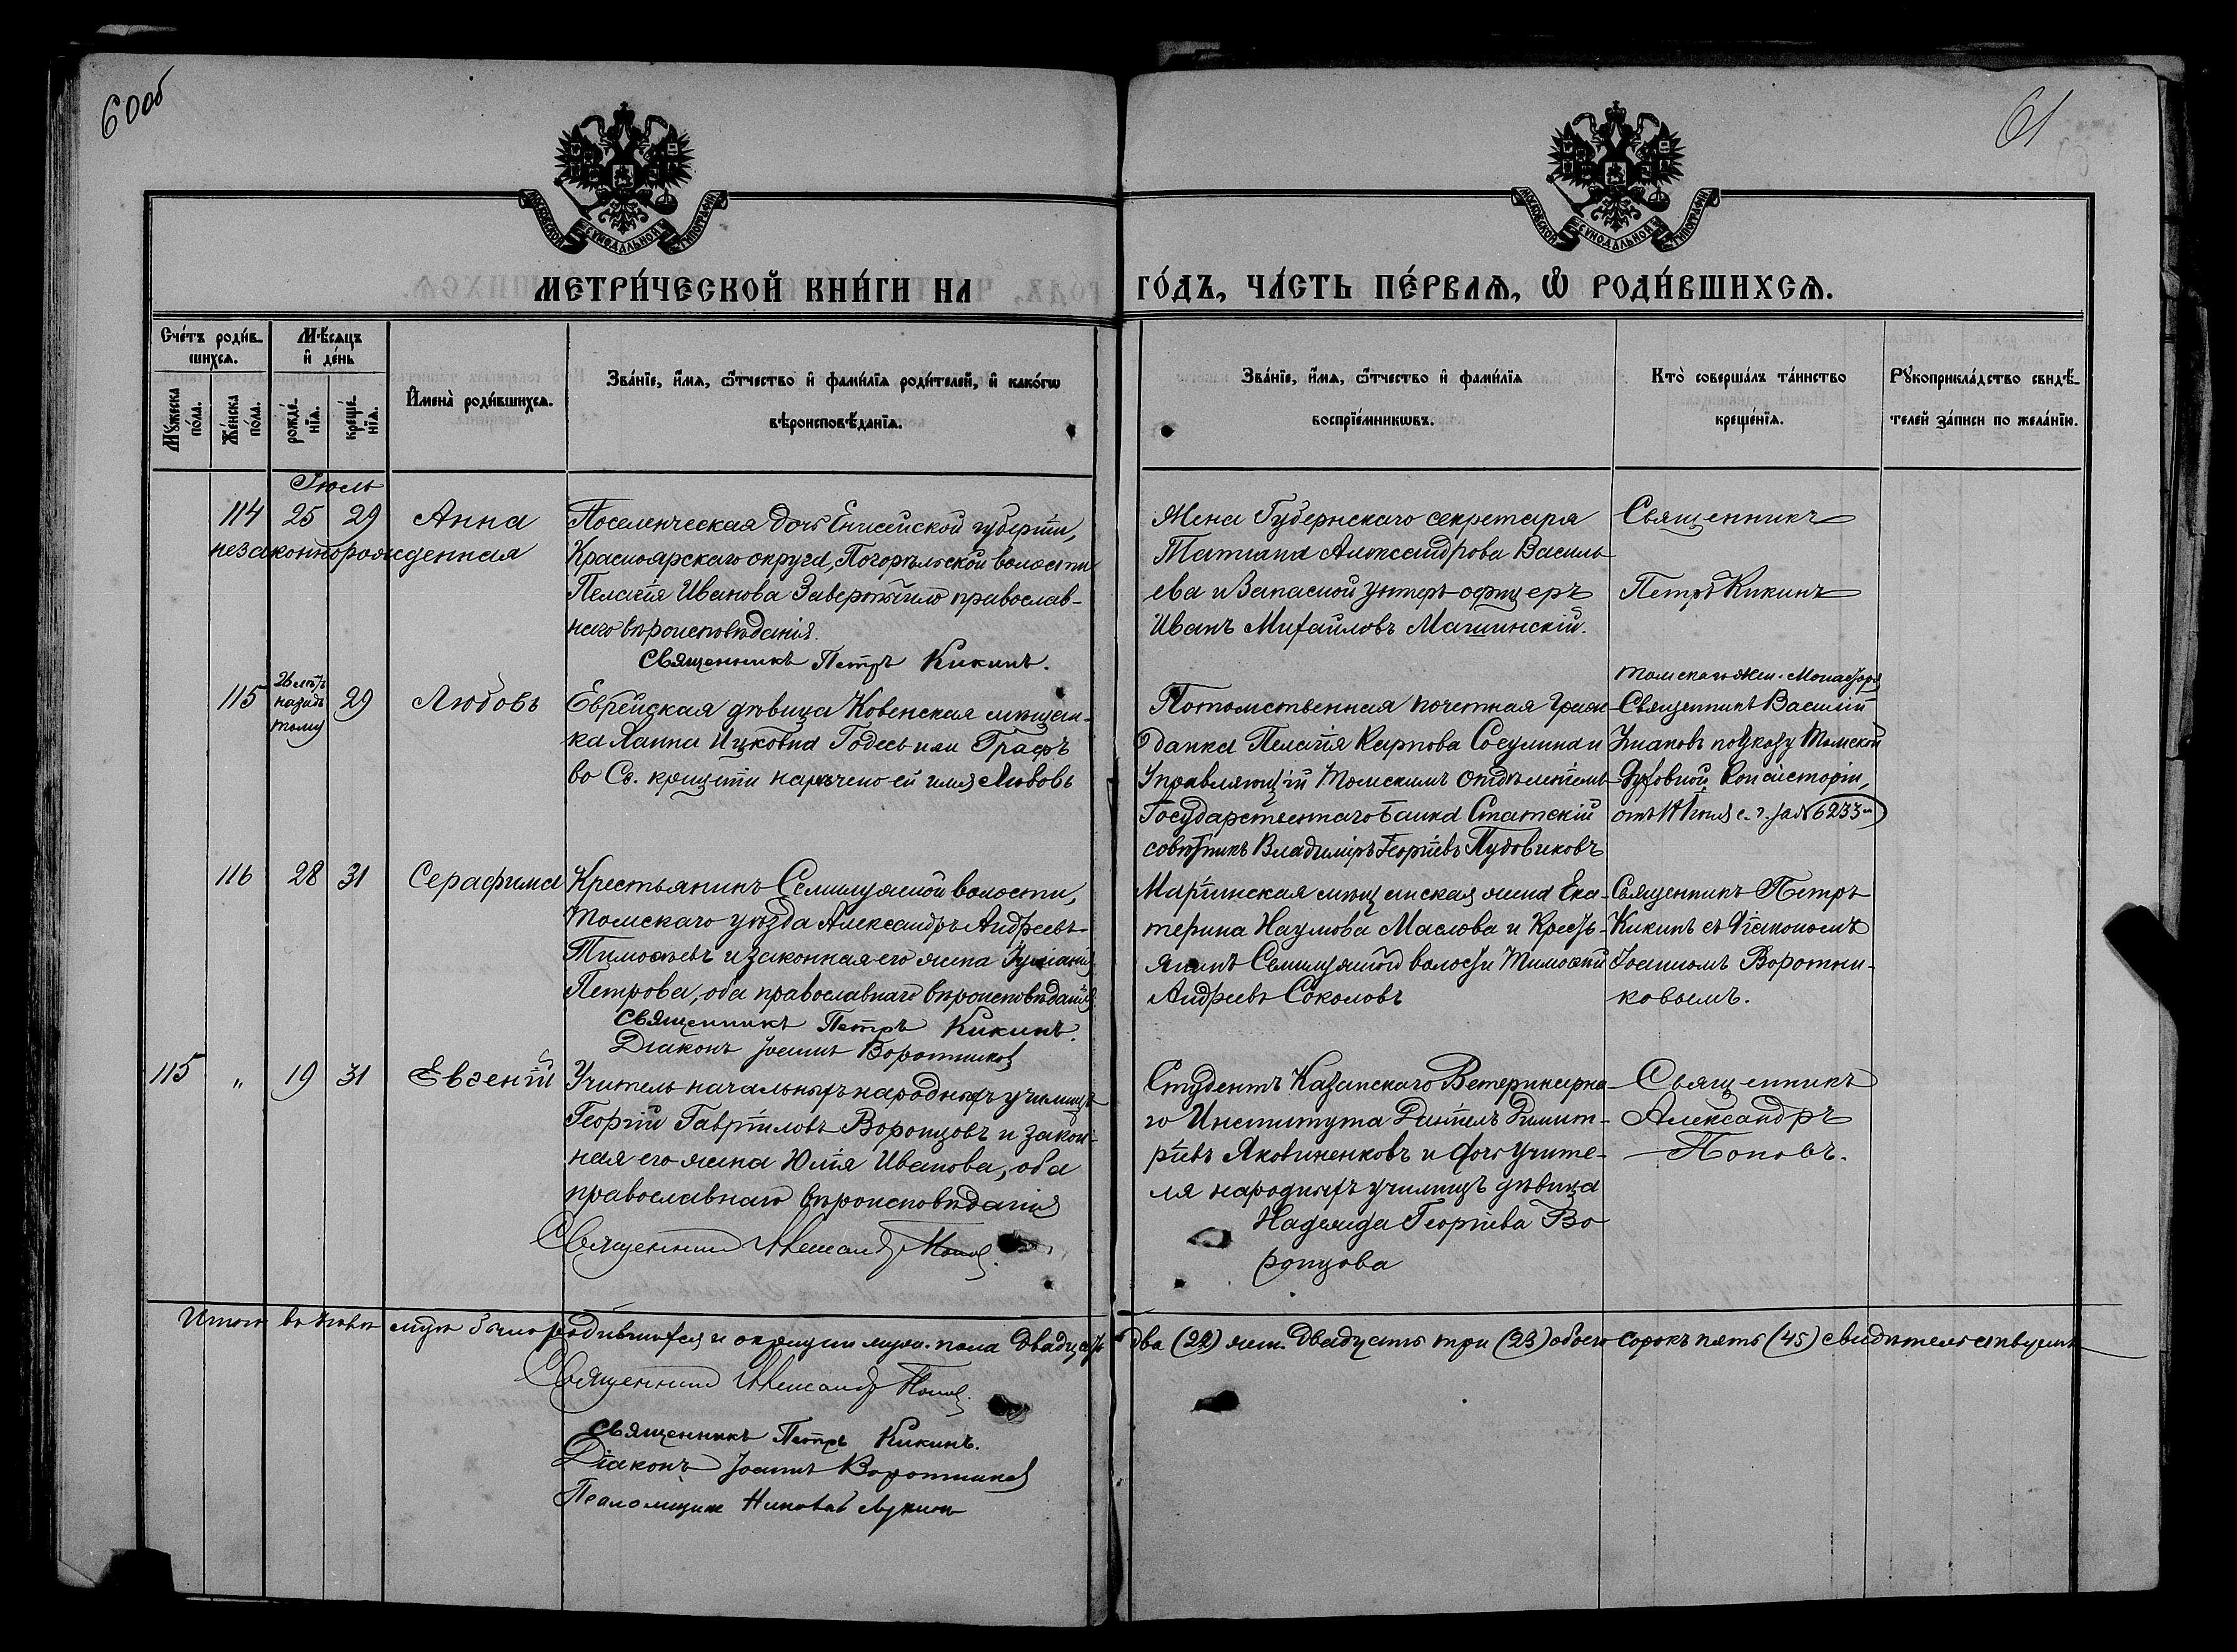 60об
61
МОСКОВСКОЙ СѴНОДАЛЬНОЙ ТИПОГРАФІИ
МОСКОВСКОЙ СѴНОДАЛЬНОЙ ТИПОГРАФІИ
МЕТРИ́ЧЕСКОЙ КНИ́ГИ НА
ГО́ДЪ, ЧА́СТЬ ПЕ́РВАѦ, Ѡ РОДИ́ВШИХСѦ.
Сче́тъ роди́в-
шихсѧ.
Мѣ́сѧцъ
и҆ де́нь
Мꙋ́жеска по́ла.
Же́нска по́ла.
рожде́-
нїѧ.
креще́-
нїѧ.
И҆мена̀ роди́вшихсѧ.
Зва́нїе, и҆́мѧ, ѻ҆́тчество и҆ фами́лїѧ роди́телей, и҆ како́гѡ
вѣроисповѣ́данїѧ.
Зва́нїе, и҆́мѧ, ѻ҆́тчество и҆ фами́лїѧ
воспрїе́мникѡвъ.
Кто̀ соверша́лъ та́инство
креще́нїѧ.
Рꙋкоприкла́дство свидѣ́-
телей за́писи по жела́нїю.
Іюль
114 25 29 Анна
незаконнорожденная
Поселенческая дочь Енисейской губерніи,
Красноярскаго округа, Погорѣльской волости
Пелагія Иванова Завертайло православ-
наго вѣроисповѣданія.
Священникъ Петръ Кикинъ.
Жена Губернскаго секретаря
Татіана Александрова Василь
ева и Запасной унтеръ-офицеръ
Иванъ Михайловъ Машинскій.
Священникъ
Петръ Кикинъ
115 26 лѣтъ
назадъ
тому
29 Любовь
Еврейская дѣвица Ковенская мѣщан-
ка Ханна Ицковна Годесъ или Графъ
во Св. крещеніи наречено ей имя Любовь
Потомственная почетная Граж
данка Пелагія Карпова Сосулина и
Управляющій Томскимъ Отдѣленіемъ
Государственнаго банка Статскій
совѣтникъ Владиміръ Георгіевъ Пудовиковъ
Томскаго Жен. Монастыря
Священникъ Василій
Ушаковъ по Указу Томской
Духовной Консисторіи,
отъ 11 Іюля с. г. за № 6233
116 28 31 Серафима
Крестьянинъ Семилужной волости,
Томскаго уѣзда Александръ Андреевъ
Тимоѳеевъ и законная его жена Іуліанія
Петрова, оба православнаго вѣроисповѣданія
Священникъ Петръ Кикинъ.
Діаконъ Іоаннъ Воротниковъ
Маріинская мѣщанская жена Ека-
терина Наумова Маслова и Кресть-
янинъ Семилужной волости Тимоѳей
Андреевъ Соколовъ
Священникъ Петръ
Кикинъ съ Діакономъ
Іоанномъ Воротни-
ковымъ.
115 " 19 31 Евгеній
Учитель начальныхъ народныхъ училищъ
Георгій Гавріиловъ Воронцовъ и закон-
ная его жена Юлія Иванова, оба
православнаго вѣроисповѣданія
Священникъ Александръ Поповъ.
Студентъ Казанскаго Ветеринарна-
го Института Даніилъ Димит-
ріевъ Яковиненковъ и дочь учите-
ля народныхъ училищъ дѣвица
Надежда Георгіева Во
ронцова
Священникъ
Александръ
Поповъ.
Итого въ Іюлѣ мѣсяцѣ было родившихся и окрещен муж. пола двадцать два (22) жен. двадцать три (23) обоего сорокъ пять (45) свидѣтельствуемъ
Священникъ Александръ Поповъ.
Священникъ Петръ Кикинъ.
Діаконъ Іоаннъ Воротниковъ
Псаломщикъ Николай Лукинъ